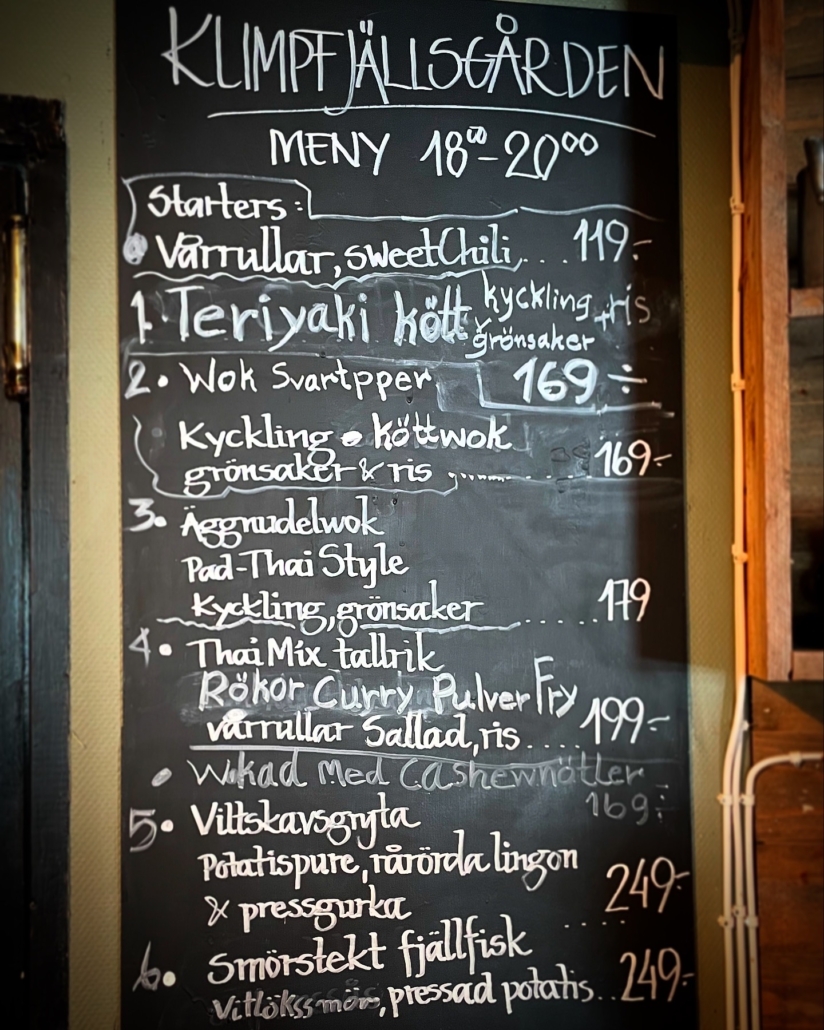 KLIMPFJÄLLSGÅRDEN
MENY 18⁰⁰-20⁰⁰
Starters:
Vårrullar, sweetChili,....119:-
1. Teriyaki kött kyckling +ris
grönsaker
2. Wok Svartpper 169÷
Kyckling • köttwok
grönsaker & ris ......... 169:-
3. Äggnudelwok
Pad-Thai Style
Kyckling, grönsaker ..... 179
4. Thai Mix tallrik
Rökor Curry Pulver Fry
vårrullar Sallad, ris.... 199:-
• Wokad Med Cashewnötter
169:-
5. Viltskavsgryta
Potatispure, rårörda lingon
& pressgurka .... 249:-
6. Smörstekt fjällfisk
Vitlökssmör, pressad potatis.. 249:-